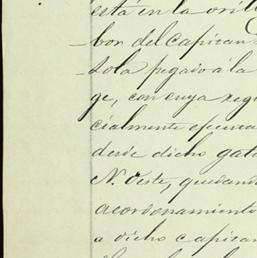 está en la oril
bon del capitan
sola pegado á la
ge, con cuya
cialmente
desde dicho
N. Oeste, quedan
acordonamiento
a dicho capitan